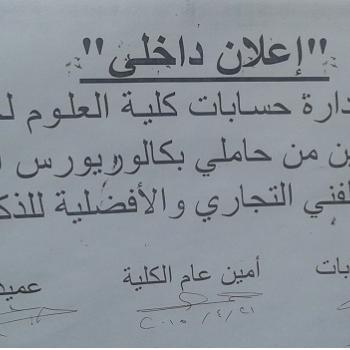 "إعلان داخلى"
دارة حسابات كلية العلوم
ين من حاملي بكالوريورس
لفني التجاري والأفضلية للذك
بات أمين عام الكلية عميد
٢٠١٥/٤/٢١